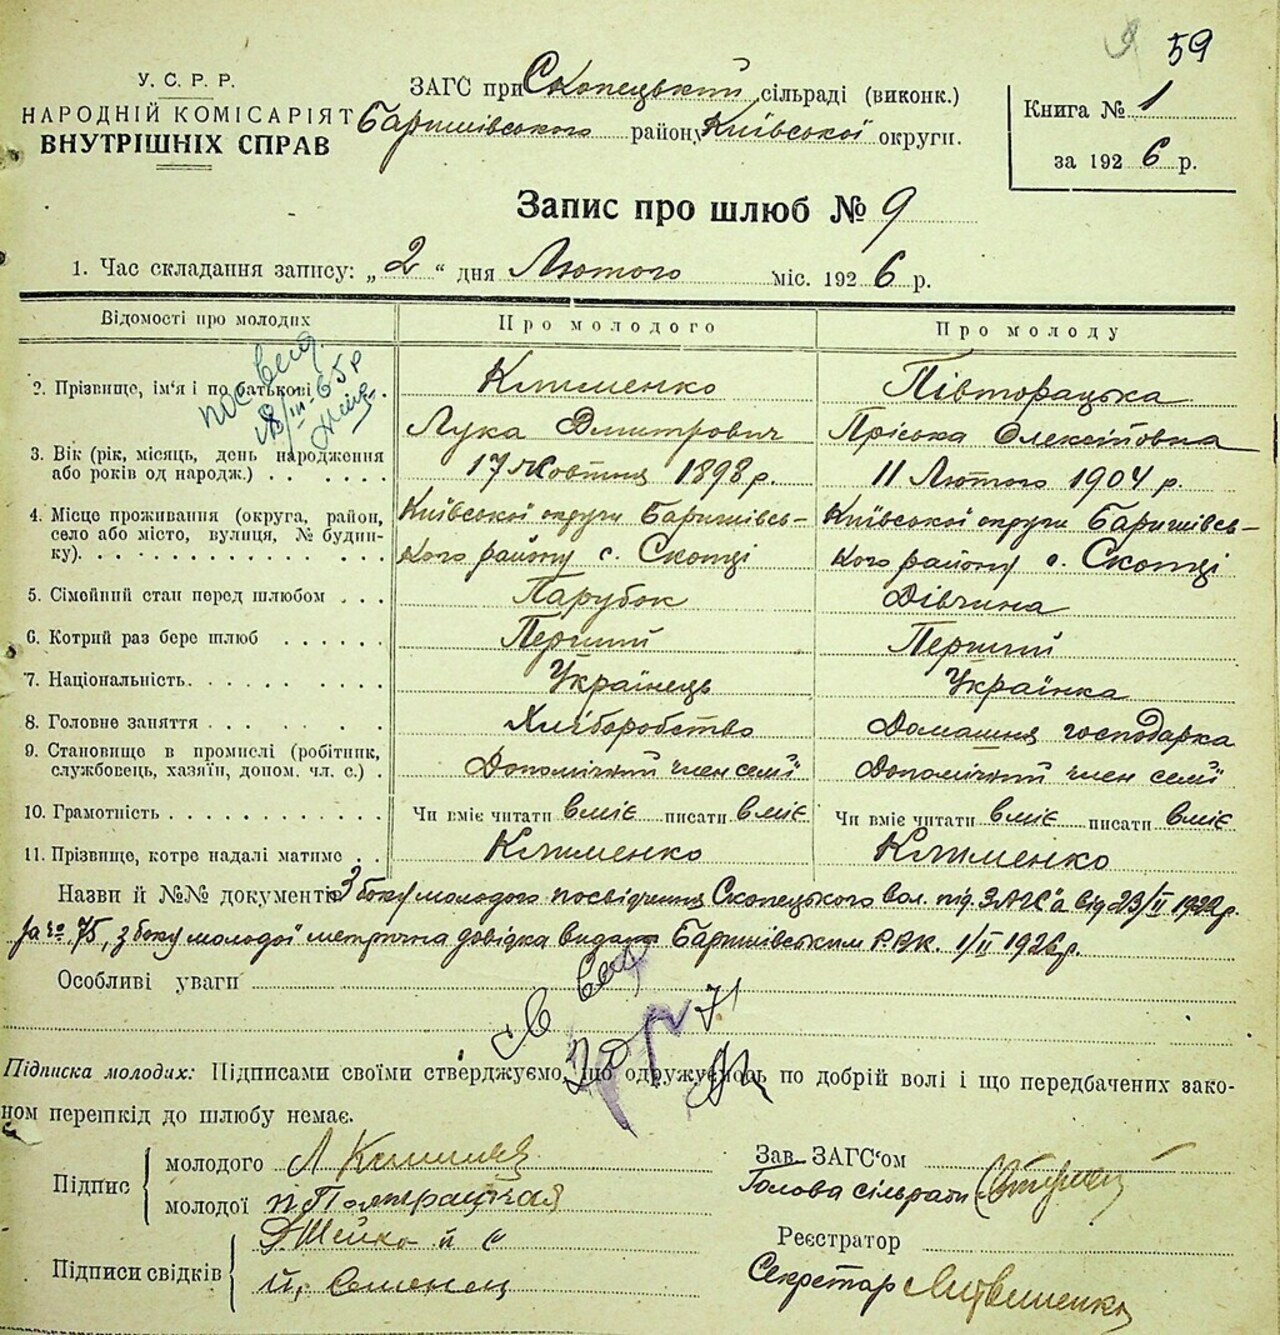 59
У. С. Р. Р.
НАРОДНІЙ КОМІСАРІЯТ
ВНУТРІШНІХ СПРАВ
ЗАГС при Скопецький сільраді (виконк.)
Баришівського району Київської округи.
Книга № 1
за 1926 р.
Запис про шлюб № 9
1. Час складання запису: „2“ дня Лютого міс. 1926 р.
Відомості про молодих
Про молодого
Про молоду
2. Прізвище, ім'я і по батькові .
Клименко
Лука Дмитрович
Півторацька
Пріська Олексіївна
65 р
3. Вік (рік, місяць, день народження
або років од народж.) . . . . . .
17 Жовтня 1898 р.
11 Лютого 1904 р.
4. Місце проживання (округа, район,
село або місто, вулиця, № будин-
ку). . . . . . . . . . . . .
Київської округи Баришівсь-
кого району с. Скопці
Київської округи Баришівсь-
кого району с. Скопці
5. Сімейний стан перед шлюбом . . .
Парубок
Дівчина
6. Котрий раз бере шлюб . . . . . .
Перший
Перший
7. Національність. . . . . . . . .
Українець
Українка
8. Головне заняття . . . . . . .
Хліборобство
Домашня господарка
9. Становище в промислі (робітник,
службовець, хазяїн, допом. чл. с.) .
Допомічний член семї
Допомічний член семї
10. Грамотність . . . . . . . . . . . .
Чи вміє читати вміє писати вміє
Чи вміє читати вміє писати вміє
11. Прізвище, котре надалі матиме . .
Клименко
Клименко
Назви й №№ документів З боку молодого посвідчення Скопецького вол. під. ЗАГС'а від 23/II 1922р.
за № 75, з боку молодої метрична довідка видана Баришівським РВК. 1/II 1926р.
Особливі уваги
Підписка молодих: Підписами своїми стверджуємо, що одружуємось по добрій волі і що передбачених зако-
ном перешкід до шлюбу немає.
Підпис
молодого Л Клименко
молодої П. Полтрацкая
Підписи свідків
Шейко й С
й. Семенец
Зав. ЗАГС‘ом
Голова сільради
Реєстратор
Секретар Литвиненко